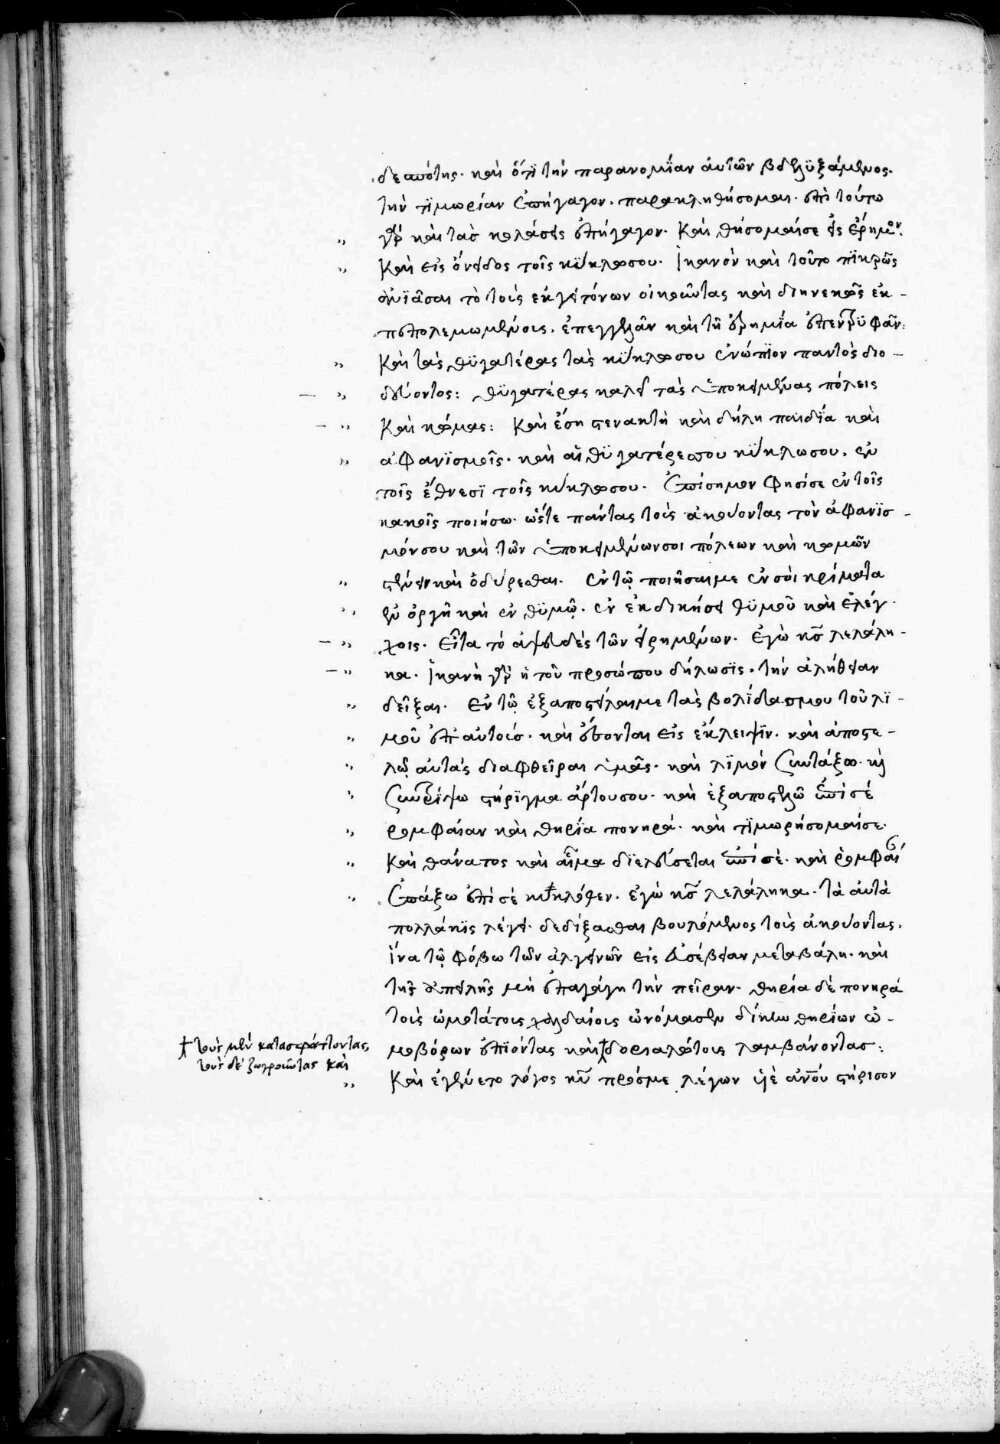 δεσπότης. καὶ ὅτι τὴν παρανομίαν αὐτῶν βδελυξάμενος.
τὴν τιμωρίαν ἐπήγαγον. παρακληθήσομαι. ἐπὶ τούτω
γὰρ καὶ τὰς κολάσεις ἐπήγαγον. Καὶ θήσομαί σε εἰς ἔρημον.
Καὶ εἰς ὄνειδος τοῖς κύκλω σου. Ἱκανὸν καὶ τοῦτο πικρῶς
ἀνιᾶσαι τὸ τοὺς ἐκ γειτόνων οἰκοῦντας καὶ διηνεκῶς ἐκ-
πεπολεμωμένους. ἐπεγγελᾶν καὶ τῆ ἐρημία ἐπεντρυφᾶν:
Καὶ τὰς θυγατέρας τὰς κύκλω σου ἐνώπιον παντὸς διο-
δεύοντος: θυγατέρας καλεῖ τὰς ὑποκειμένας πόλεις
Καὶ κώμας: Καὶ ἔση στενακτὴ καὶ δήλη παιδία καὶ
ἀφανισμοῖς. καὶ αἱ θυγατέρες σου κύκλω σου. ἐν
τοῖς ἔθνεσι τοῖς κύκλω σου. Ἐπίσημον φησί σε ἐν τοῖς
κακοῖς ποιήσω. ὥστε πάντας τοὺς ἀκούοντας τὸν ἀφανισ-
μόν σου καὶ τῶν ὑποκειμένων σοι πόλεων καὶ κωμῶν
στένειν καὶ ὀδύρεσθαι. ἐν τῶ ποιῆσαί με ἐν σοὶ κρίματα
ἐν ὀργῆ καὶ ἐν θυμῶ. ἐν ἐκδικήσει θυμοῦ καὶ ἐλέγ-
χοις. Εἶτα τὸ ἀψευδὲς τῶν εἰρημένων. Ἐγὼ κς λελάλη-
κα. Ἱκανὴ γὰρ ἡ τοῦ προσώπου δήλωσις. τὴν ἀλήθειαν
δεῖξαι. Ἐν τῶ ἐξαποστεῖλαί με τὰς βολίδας μου τοῦ λι-
μοῦ ἐπ' αὐτούς. καὶ ἔσονται εἰς ἔκλειψιν. καὶ ἀποστε-
λῶ αὐτὰς διαφθεῖραι ὑμᾶς. καὶ λιμὸν συντάξω. κὶ
συντρίψω στήριγμα ἄρτου σου. καὶ ἐξαποστελῶ ἐπὶ σέ
ρομφαίαν καὶ θηρία πονηρά. καὶ τιμωρήσομαί σε.
Καὶ θάνατος καὶ αἷμα διελεύσεται ἐπὶ σέ. καὶ ῥομφαί
ἐπάξω ἐπὶ σὲ κυκλόθεν. ἐγὼ κς λελάληκα. Τὰ αὐτὰ
πολλάκις λέγει. δεδίξασθαι βουλόμενος τοὺς ἀκούοντας.
ἵνα τῶ φόβω τῶν ἀλγεινῶν εἰς εὐσέβειαν μεταβάλη. καὶ
τῆς ἀπειλῆς μὴ ἐπαγάγη τὴν πεῖραν. θηρία δὲ πονηρὰ
τοὺς ὠμοτάτους χαλδαίους ὠνόμασεν δίκην θηρίων ὠ-
μοβόρων ἐπιόντας καὶ δοριαλώτους λαμβάνοντας:
τοὺς μὲν κατασφάττοντας,
τοὺς δὲ ζωγροῦντας καὶ
Καὶ ἐγένετο λόγος κυ πρός με λέγων υἱὲ ἀνου στήρισον